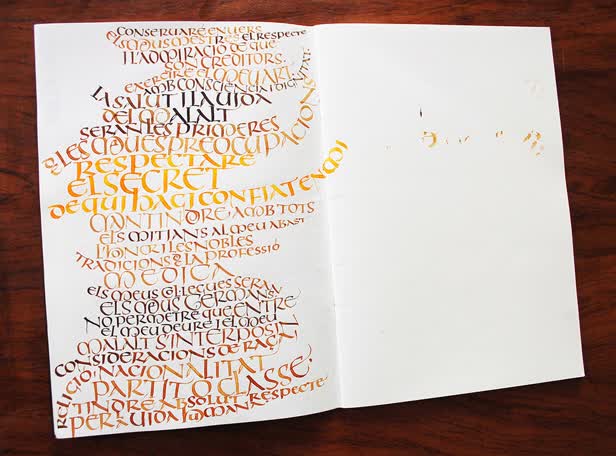 CONSERVARÉ ENVERS
ELS MEUS MESTRES EL RESPECTE
I L'ADMIRACIÓ DE QUE
SÓN CREDITORS.
EXERCIRÉ EL MEU ART
AMB CONSCIÈNCIA I DIGNITAT.
LA SALUT I LA VIDA
DEL MALALT
SERAN LES PRIMERES
DE LES MEVES PREOCUPACIONS
RESPECTARÉ
EL SECRET
DE QUI HAGI CONFIAT EN MI
MANTINDRÉ, AMB TOTS
ELS MITJANS AL MEU ABAST
L'HONOR I LES NOBLES
TRADICIONS DE LA PROFESSIÓ
MÈDICA
ELS MEUS COL·LEGUES SERAN
ELS MEUS GERMANS
NO PERMETRÉ QUE ENTRE
EL MEU DEURE I EL MEU
MALALT S'INTERPOSIN
CONSIDERACIONS DE RAÇA,
RELIGIÓ, NACIONALITAT
PARTIT O CLASSE.
TINDRÉ ABSOLUT RESPECTE
PER A VIDA HUMANA